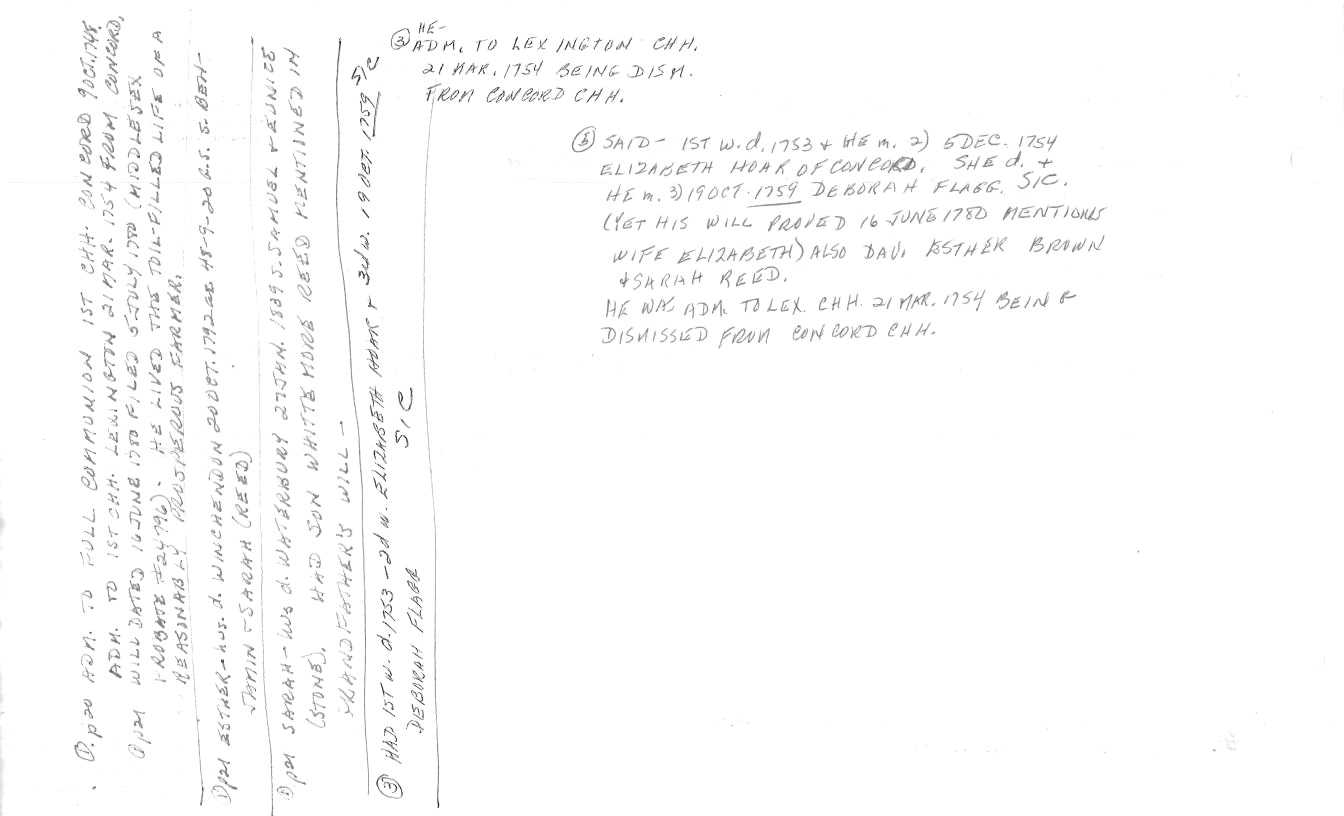 ① p20 ADM. TO FULL COMMUNION 1ST CHH. CONCORD 9 OCT. 1748.
ADM. TO 1ST CHH. LEXINGTON 21 MAR. 1754 FROM CONCORD,
① p21 WILL DATED 16 JUNE 1780 FILED 5 JULY 1780 (MIDDLESEX
PROBATE #24796). HE LIVED THE TOIL-FILLED LIFE OF A
REASONABLY PROSPEROUS FARMER.
① p21 ESTHER - hus. d. WINCHENDON 20 OCT. 1792 ae. 48-9-20 G.S. S. BEN-
JAMIN + SARAH (REED)
① p21 SARAH - hus d. WATERBURY 27 JAN. 1839 S. SAMUEL + EUNICE
(STONE). HAD SON WHITTEMORE REED MENTIONED IN
GRANDFATHER'S WILL -
③ HAD 1ST W. d. 1753 - 2d W. ELIZABETH HOAR + 3d W. 19 OCT. 1759 SIC
DEBORAH FLAGG SIC
③ HE-
ADM. TO LEXINGTON CHH.
21 MAR. 1754 BEING DISM.
FROM CONCORD CHH.
⑤ SAID - 1ST W. d. 1753 + HE m. 2) 5 DEC. 1754
ELIZABETH HOAR OF CONCORD. SHE d. +
HE m. 3) 19 OCT. 1759 DEBORAH FLAGG. SIC.
(YET HIS WILL PROVED 16 JUNE 1780 MENTIONS
WIFE ELIZABETH) ALSO DAU. ESTHER BROWN
+ SARAH REED.
HE WAS ADM. TO LEX. CHH. 21 MAR. 1754 BEING
DISMISSED FROM CONCORD CHH.